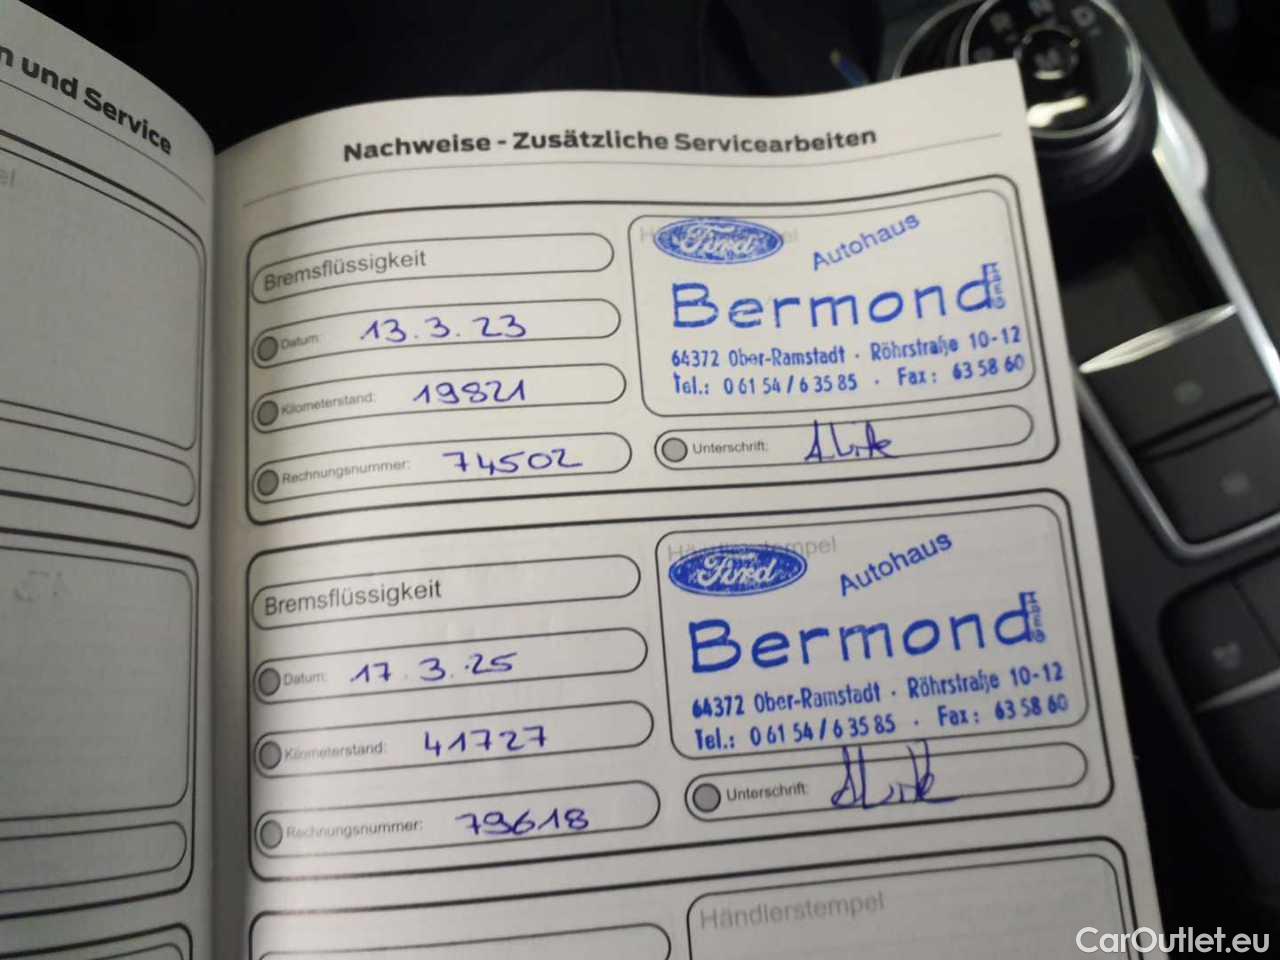 n und Service
Nachweise - Zusätzliche Servicearbeiten
Bremsflüssigkeit
Datum: 13.3.23
Kilometerstand: 19821
Rechnungsnummer: 74502
Ford
Autohaus
Bermond
64372 Ober-Ramstadt · Röhrstraße 10-12
Tel.: 0 61 54 / 6 35 85 · Fax: 63 58 60
Unterschrift:
Bremsflüssigkeit
Datum: 17.3.25
Kilometerstand: 41727
Rechnungsnummer: 79618
Händlerstempel
Ford
Autohaus
Bermond
64372 Ober-Ramstadt · Röhrstraße 10-12
Tel.: 0 61 54 / 6 35 85 · Fax: 63 58 60
Unterschrift:
Händlerstempel
CarOutlet.eu